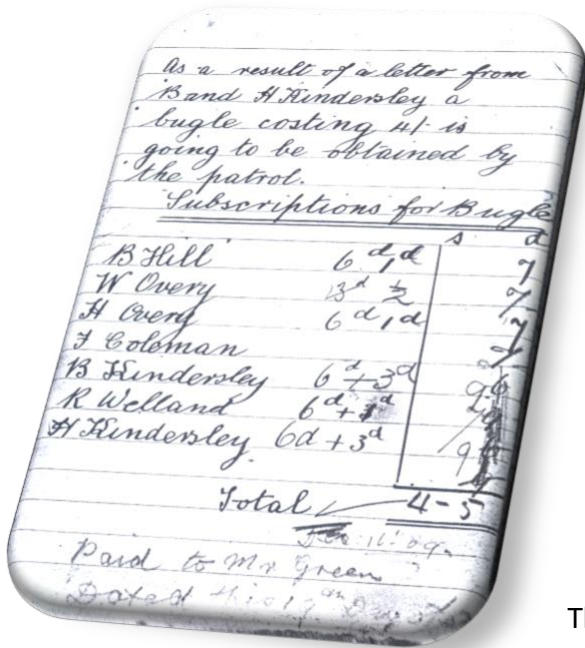 As a result of a letter from
B and H Kindersley a
bugle costing 4/- is
going to be obtained by
the patrol.
Subscriptions for Bugle
s d
B Hill 6d 1d 7
W Overy 3d ½ 7
H Overy 6d 1d 7
F Coleman
B Kindersley 6d + 3d 9
R Welland 6d +
H Kindersley 6d + 3d 9
Total 4-5
Paid to Mr Green
Dated
Th